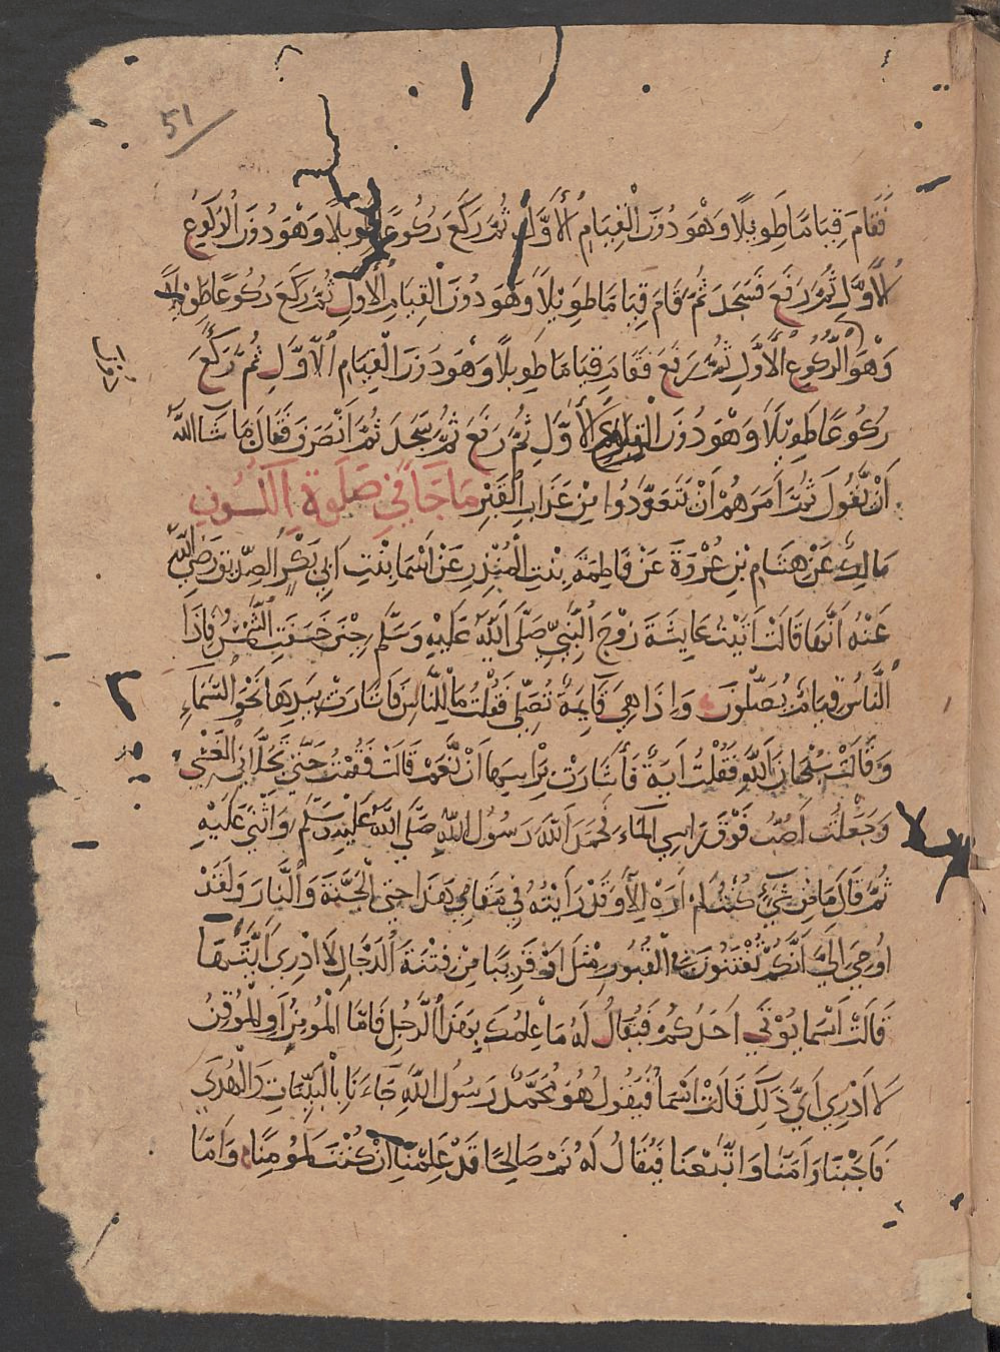 51
فَقَامَ قِيَامًا طَوِيلًا وَهْوَ دُونَ الْقِيَامِ الْأَوَّلِ ثُمَّ رَكَعَ رُكُوعًا طَوِيلًا وَهْوَ دُونَ الرُّكُوعِ
الْأَوَّلِ ثُمَّ رَفَعَ فَسَجَدَ ثُمَّ قَامَ قِيَامًا طَوِيْلًا وَهْوَ دُونَ الْقِيَامِ الْأَوَّلِ ثُمَّ رَكَعَ رُكُوعًا طَوِيْلًا
وَهْوَ الرُّكُوعُ الْأَوَّلِ ثُمَّ رَفَعَ فَقَامَ قِيَامًا طَوِيلًا وَهْوَ دُونَ الْقِيَامِ الْأَوَّلِ ثُمَّ رَكَعَ
دون
رُكُوعًا طَوِيْلًا وَهْوَ دُونَ الْأَوَّلِ ثُمَّ رَفَعَ ثُمَّ سَجَدَ ثُمَّ انْصَرَفَ فَقَالَ مَا شَاءَ اللَّهُ
أَنْ يَّقُولَ ثُمَّ أَمَرَهُمْ أَنْ يَتَعَوَّذُوا مِنْ عَذَابِ الْقَبْرِ مَا جَاءَ فِي صَلَوةِ الْكُسُوفِ
مَالِكٌ عَنْ هِشَامِ بْنِ عُرْوَةَ عَنْ فَاطِمَةَ بِنْتِ الْمُنْذِرِ عَنْ أَسْمَا بِنْتِ أَبِي بَكْرٍ الصِّدِّيقِ رَضِيَ اللَّهُ
عَنْهُ أَنَّهَا قَالَتْ أَتَيْتُ عَايِشَةَ زَوْجَ النَّبِيِّ صَلَّى اللَّهُ عَلَيْهِ وَسَلَّم حِيْنَ خَسَفَتِ الشَّمْسُ فَإِذَا
النَّاسُ قِيَامٌ يُصَلُّونَ وَإِذَا هِيَ قَايِمَةٌ تُصَلِّي فَقُلْتُ مَا لِلنَّاسِ فَأَشَارَتْ بِيَدِهَا نَحْوَ السَّمَاءِ
وَقَالَتْ سُبْحَانَ اللَّهِ فَقُلْتُ آيَةٌ فَأَشَارَتْ بِرَأْسِهَا أَنْ نَّعَمْ قَالَتْ فَقُمْتُ حَتَّى تَجَلَّانِي الْغَشْيُ
وَجَعَلْتُ أَصُبُّ فَوْقَ رَاسِي الْمَاءَ فَحَمِدَ اللَّهَ رَسُولُ اللَّهِ صَلَّى اللَّهُ عَلَيْهِ وَسَلَّمَ وَأَثْنَى عَلَيْهِ
ثُمَّ قَالَ مَا مِنْ شَيْءٍ كُنْتُ لَمْ أَرَهُ إِلَّا وَقَدْ رَأَيْتُهُ فِي مَقَامِي هَذَا حَتَّى الْجَنَّةَ وَالنَّارَ وَلَقَدْ
أُوحِيَ إِلَيَّ أَنَّكُمْ تُفْتَنُونَ فِي الْقُبُورِ مِثْلَ أَوْ قَرِيبًا مِنْ فِتْنَةِ الدَّجَّالِ لَا أَدْرِي أَيَّتَهُمَا
قَالَتْ أَسْمَا يُؤْتَى أَحَدُكُمْ فَيُقَالُ لَهُ مَا عِلْمُكَ بِهَذَا الرَّجُلِ فَأَمَّا الْمُومِنُ أَوِ الْمُوقِنُ
لَا أَدْرِي أَيَّ ذَلِكَ قَالَتْ أَسْمَا فَيَقُولُ هُوَ مُحَمَّدٌ رَسُولُ اللَّهِ جَاءَنَا بِالْبَيِّنَاتِ وَالْهُدَى
فَأَجَبْنَا وَآمَنَّا وَاتَّبَعْنَا فَيُقَالُ لَهُ نَمْ صَالِحًا قَدْ عَلِمْنَا إِنْ كُنْتَ لَمُومِنًا وَأَمَّا